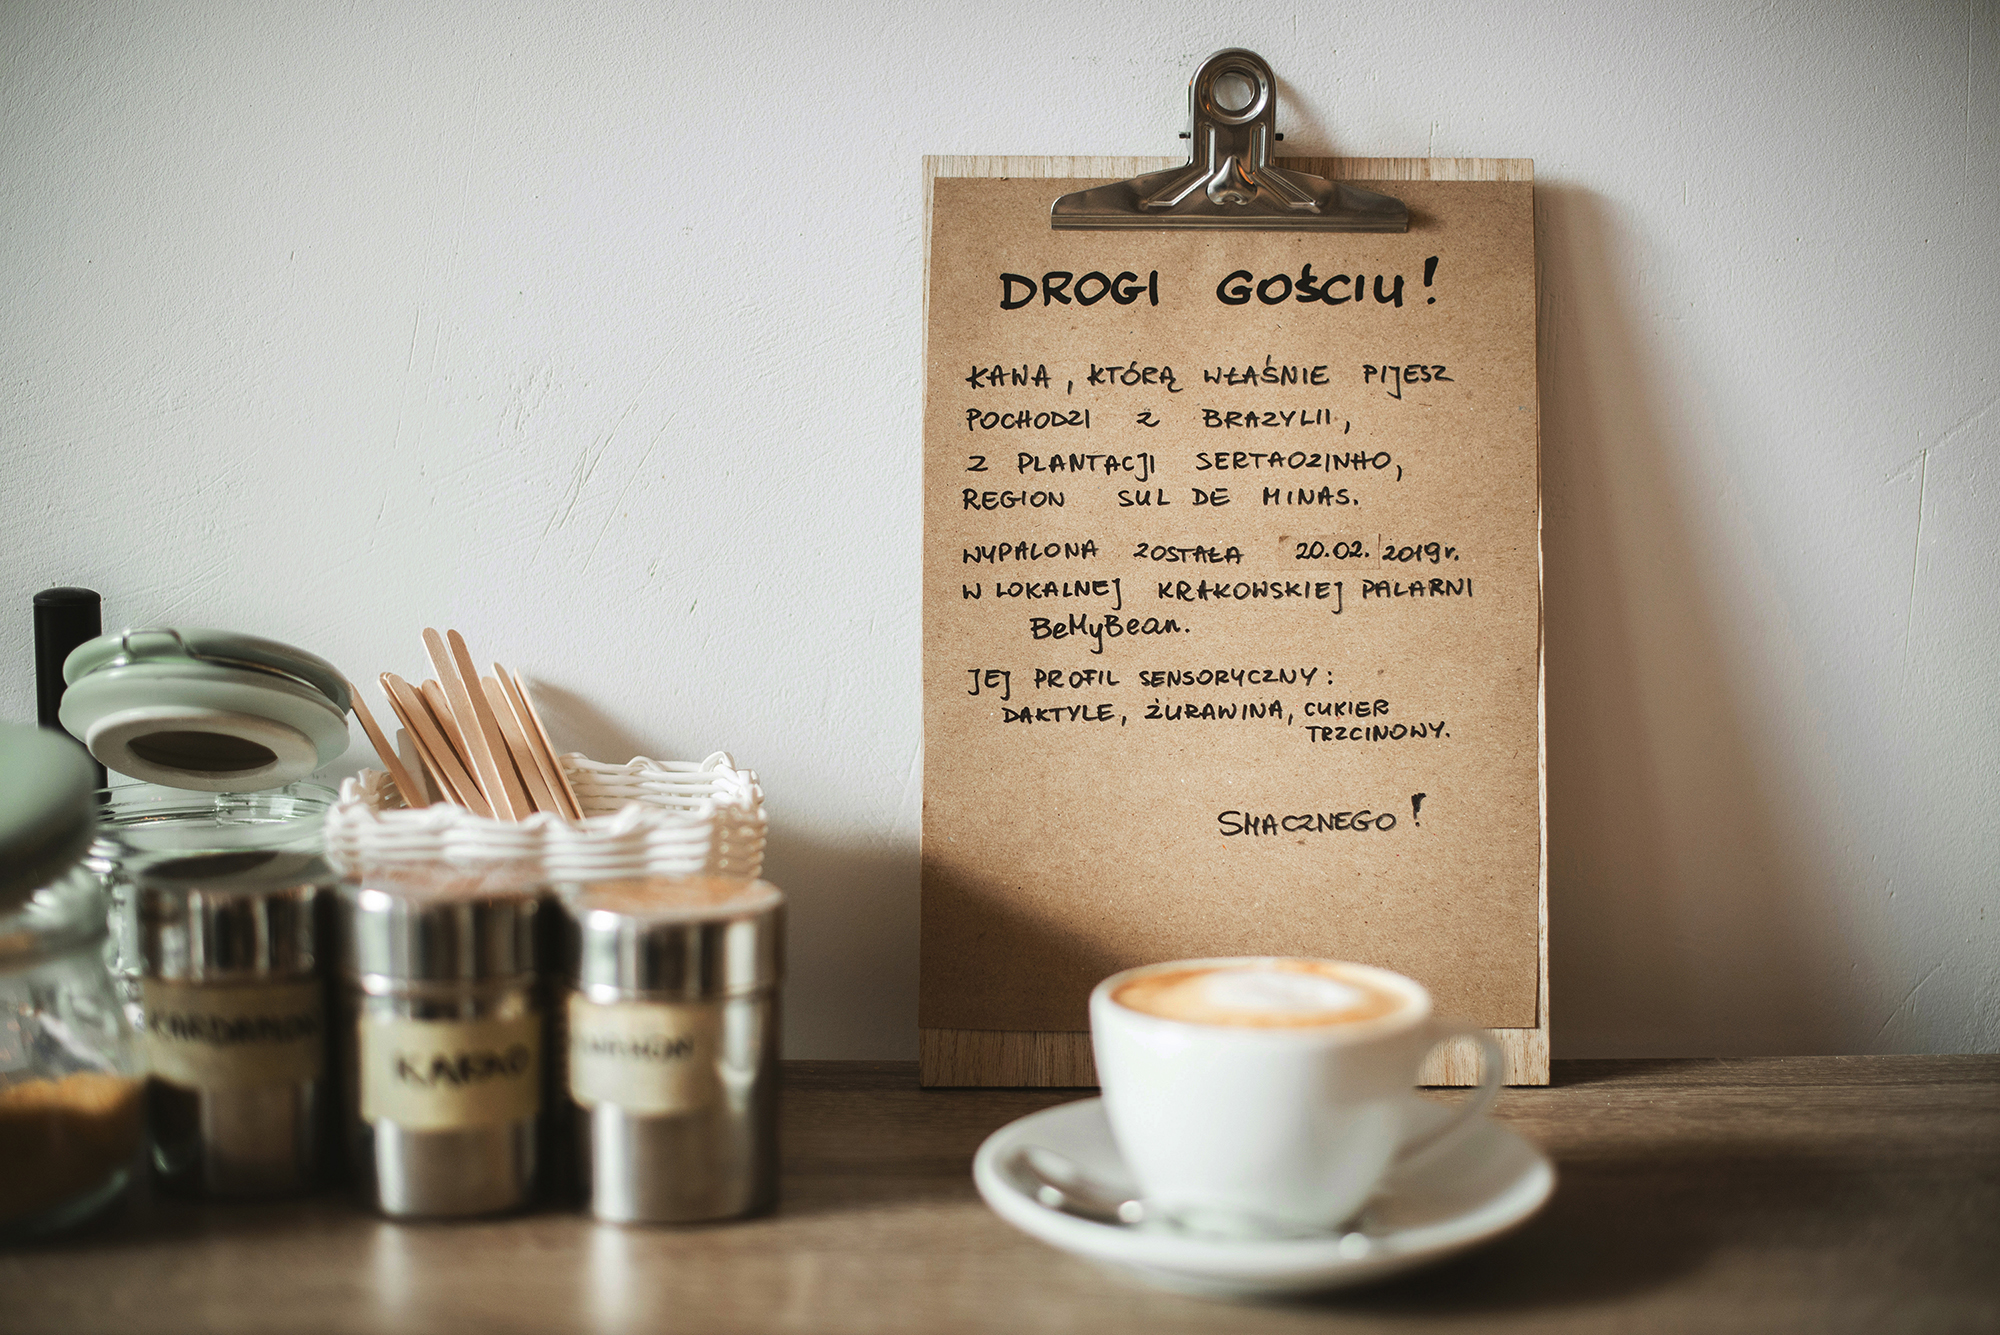 DROGI GOŚCIU!
KAWA, KTÓRĄ WŁAŚNIE PIJESZ
POCHODZI Z BRAZYLII,
Z PLANTACJI SERTAOZINHO,
REGION SUL DE MINAS.
WYPALONA ZOSTAŁA 20.02.2019r.
W LOKALNEJ KRAKOWSKIEJ PALARNI
BeMyBean.
JEJ PROFIL SENSORYCZNY:
DAKTYLE, ŻURAWINA, CUKIER
TRZCINOWY.
SMACZNEGO!
KARDAMON
KAKAO